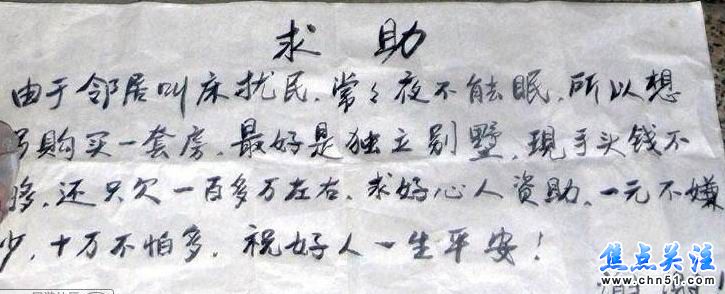 求助
由于邻居叫床扰民.常々夜不能眠.所以想
购买一套房.最好是独立别墅.现手头钱不
够.还只欠一百多万左右.求好心人資助.一元不嫌
少.十万不怕多.祝好人一生平安!
焦点关注
www.chn51.com